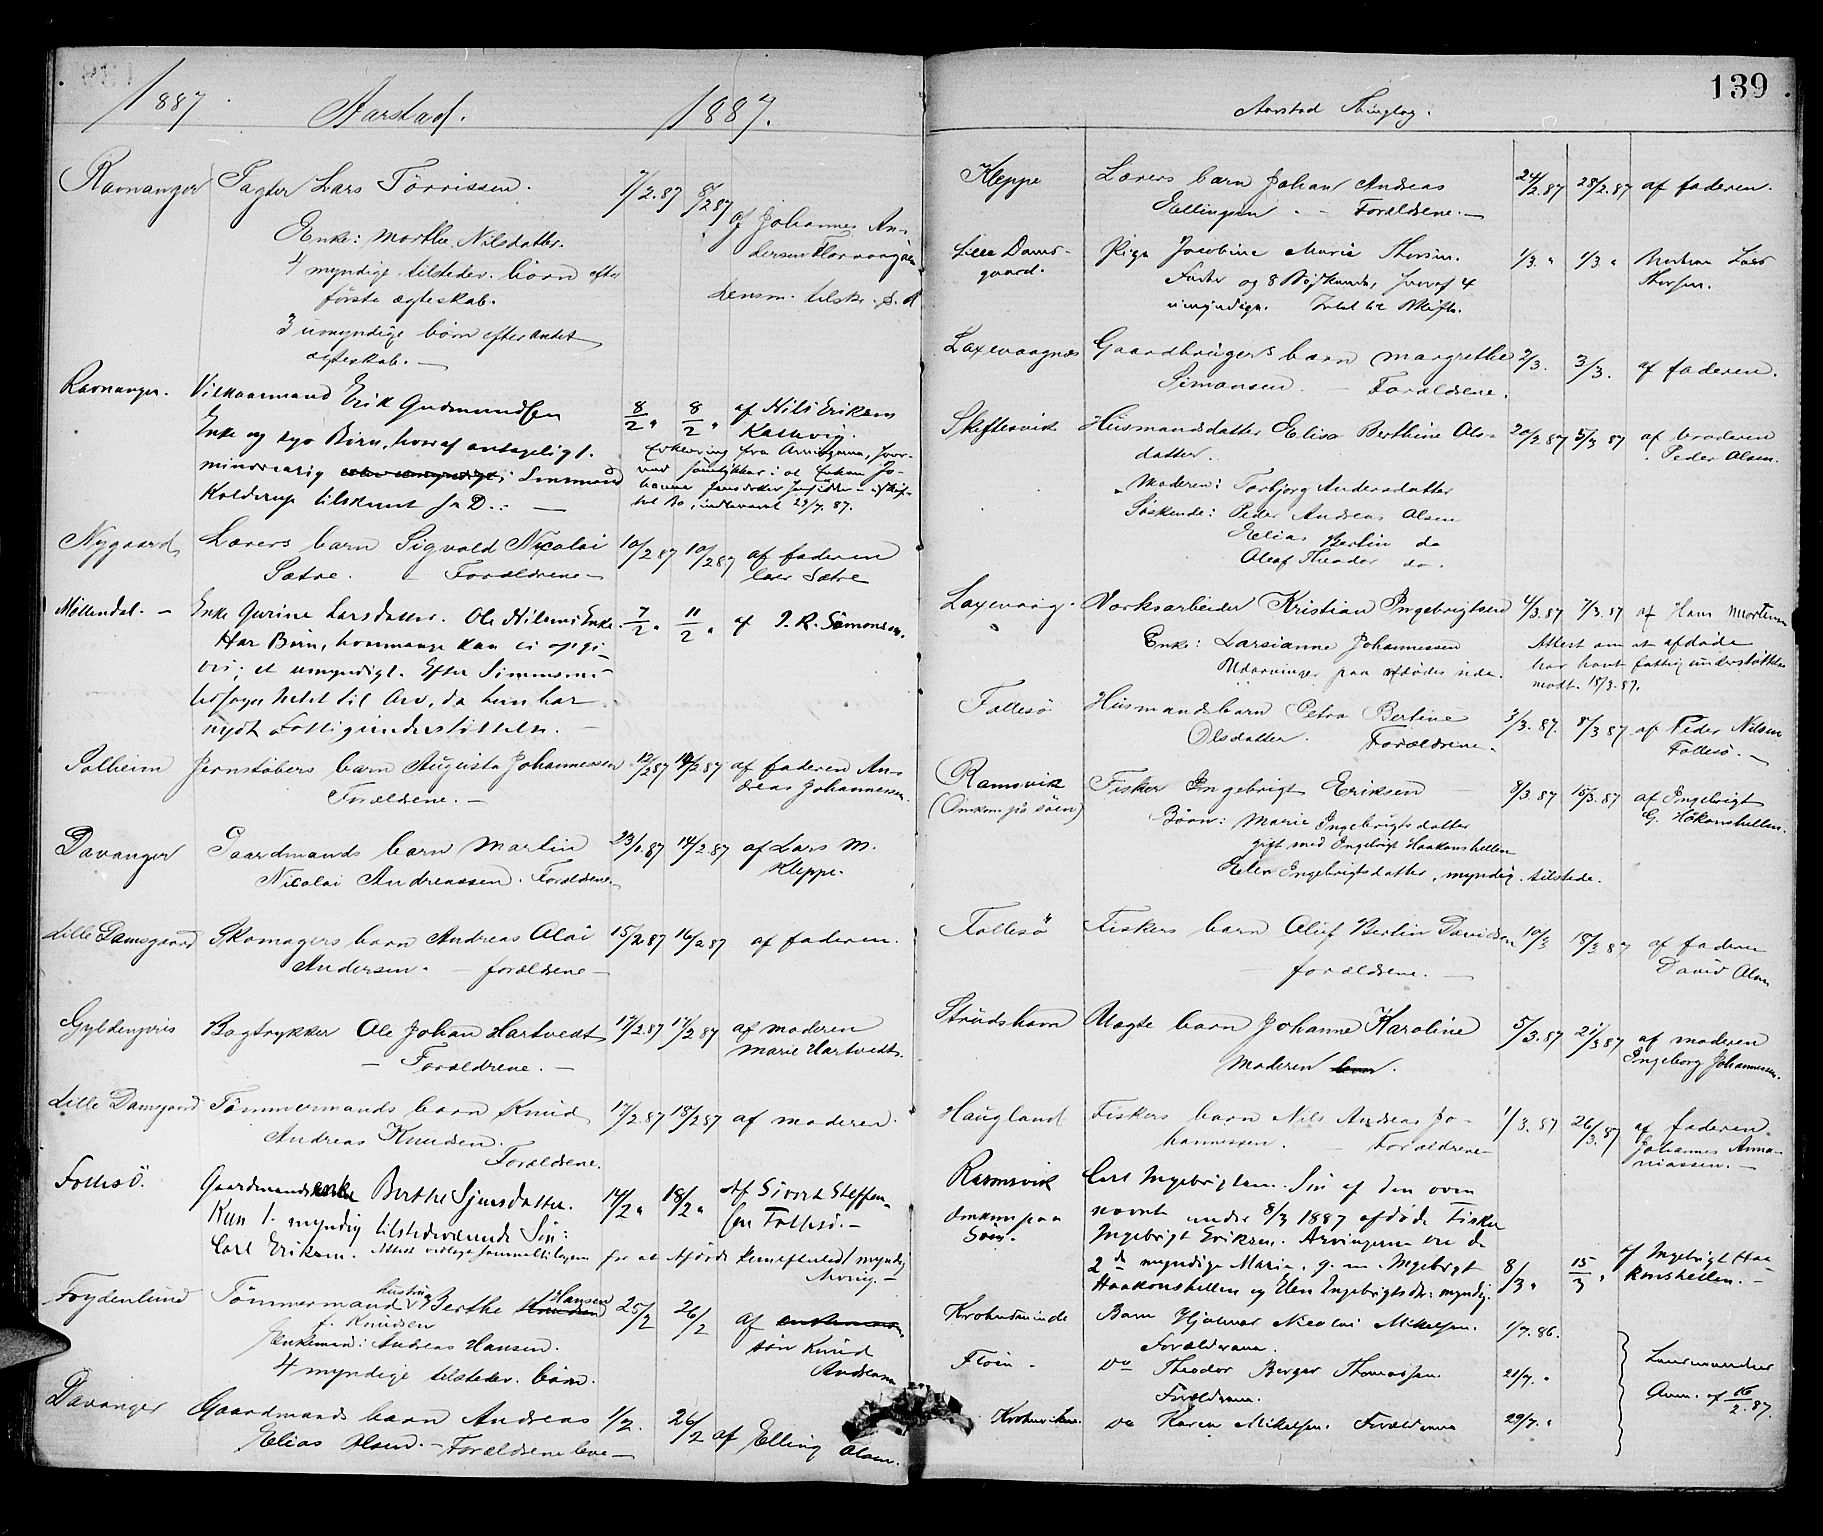 1887 Aarstad. 1887.
Ravnanger Pagter Lars Törrissen. 7/2.87 8/2 87 af Johannes An-
Enke: Marthe Nilsdatter. dersen Florvaagøen
4 myndige tilsteder. börn efter
förste ægteskab. Lensm. tilskr.
3 umyndige börn efter andet
ægteskab. —
Ravnanger. Vilkaarmand Erik Gudmundsen 8/2 " 8/2 " af Nils Eriksen
Enke og syv Börn, hvoraf antageligt. Erklæring fra Arvingerne, hvor-
mindreaarig
Kolderup tilskrevet
hanne Jansdatter
indleveret 29/7. 87.
Nygaard Lærers barn Sigvald Nicolai 10/2 87 10/2 87 af faderen
Sætre. - Forældrene — lærer Sætre
Möllendal. — Enke Gurine Larsdatter. Ole Nilsens Enke. 7/2 " 11/2 " af J. R. Simonsen.
Har Börn, hvormange kan ei opgi-
ves; et umyndigt. Efter Simonsens
Udsagn Intet til Arv, da hun har
nydt Fattigunderstöttelse. —
Solheim Jernstöbers barn Augusta Johannessen 12/2 87 14/2 87 af faderen An-
Forældrene. — dreas Johannessen.
Davanger Gaardmands barn Martin 23/1.87 14/2.87 af Lars M.
Nicolai Andreassen. Forældrene. Kleppe.
Lille Damsgaard Skomagers barn Andreas Olai 15/2.87 16/2 87 af faderen.
Andersen. — forældrene —
Gyldenpris Bogtrykker Ole Johan Hartvedt 17/2.87 17/2 87 af moderen
— Forældrene. — Marie Hartvedt.
Lille Damsgaard Tömmermands barn Knud 17/2.87 18/2 87 af moderen.
Andreas Knudsen.
Forældrene.
Follesö. Gaardmandsenke Berthe Sjursdatter. 14/2 " 18/2 " Af Sivert Steffen-
Kun 1. myndig tilstedeværende Sön: sen Follesö. —
Carl Eriksen. for at Afdöde kun efterlod 1 myndig
Arving. —
Frydenlund Tömmermand hustru Berthe Hansen 25/2 26/2 af
f. Knudsen sön Knud
Enkemand: Andreas Hansen. Andreassen
4 myndige tilsteder. börn.
Davanger Gaardmands barn Andreas 1/2. 26/2 af Elling Olsen.
Elias Olsen. — Forældrene leve —
139
Aarstad Thinglag.
Kleppe Lærers barn Johan Andreas 24/2.87 28/2.87 af faderen.
Ellingsen. — Forældrene. —
Lille Dams- Pige Jacobine Marie Thorsen. 1/3. " 1/3 " Lars
gaard. Fader og 8 Södskende, hvoraf 4 Thorsen.
umyndige. Intet til Skifte.
Laxevaagnæs Gaardbrugers barn Margrethe 2/3. 3/3. af faderen.
Simonsen. — Forældrene.
Skeftesvik Husmandsdatter Elisa Berthine Ols- 20/2 87 5/3 87 af broderen
datter. Peder Olsen.
Moderen: Torbjorg Andersdatter
Söskende: Peder Andreas Olsen
Elias Bertin do
Oluf Theodor do.
Laxevaag. Værksarbeider Kristian Ingebrigtsen 4/3.87 7/3.87 af Hans Mortensen
Enke: Larsianne Johannessen Attest om at afdöde
Udarvinger paa afdödes side. har havt fattigunderstöttelse
modt. 18/3.87.
Follesö Husmandsbarn Petra Bertine 3/3.87. 8/3 87 af Peder Nilsen
Olsdatter. Forældrene. Follesö. —
Ramsvik Fisker Ingebrigt Eriksen — 8/3.87 15/3.87 af Ingebrigt
(Omkom. på söen) Börn: Marie Ingebrigtsdatter G. Håkonshellen.
gift med Ingebrigt Haakonshellen
Elen Ingebrigtsdatter, myndig. tilstede.
Follesö Fiskers barn Oluf Bertin Davidsen 10/3 18/3 87 af faderen
— forældrene. — David Olsen
Strudshavn Uægte barn Johanne Karoline 5/3.87 21/3 87 af moderen
Moderen lever. Ingeborg Johannessen.
Haugland Fiskers barn Nils Andreas Jo- 1/3.87 26/3.87 af faderen
hannessen. — Forældrene — Johannes Anna-
niassen. —
Ramsvik Carl Ingebrigtsen. Sön af den oven
Omkom paa nævnt under 8/3 1887 afdöde Fisker
Söen. Ingebrigt Eriksen. Arvingerne ere de
2de myndige Marie, g. m. Ingebrigt 8/3 " 15/3 " af Ingebrigt Haa-
Haakonshellen og Elen Ingebrigtsdtr: myndig. konshellen. —
Barn Hjalmar Nicolai Mikelsen. 1/7. 86.
Forældrene. Lensmandens
Floen. do Theodor Berger Thomassen. 21/7. " Anm. af 16/2. 87.
Forældrene.
do Karen Mikelsen. Forældrene 29/7. "